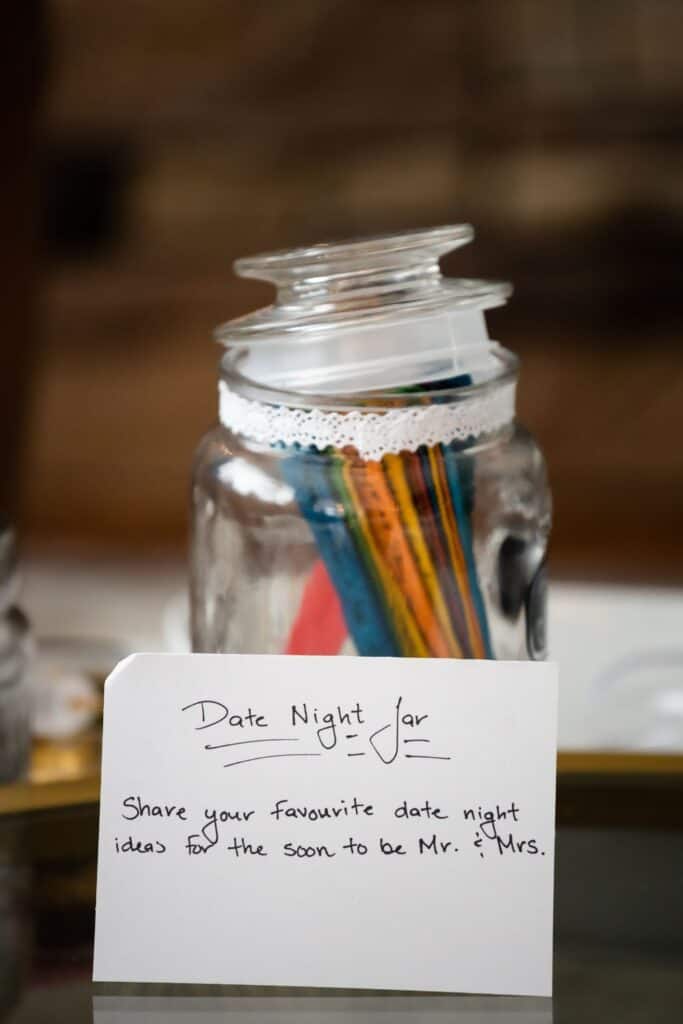 Date Night Jar
Share your favourite date night
ideas for the soon to be Mr. & Mrs.